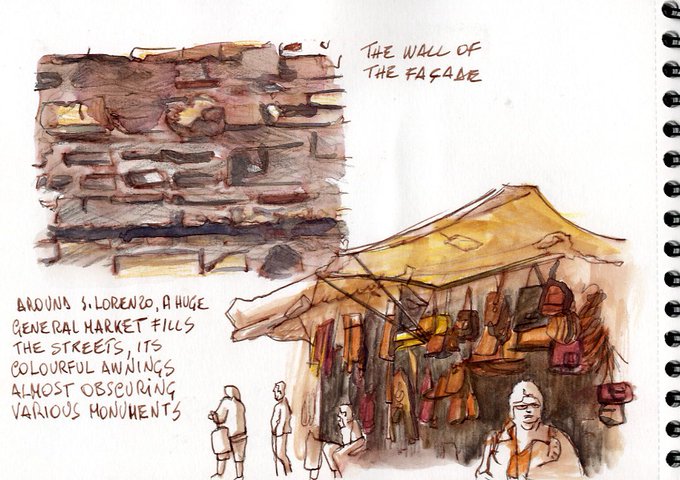 THE WALL OF
THE FAÇADE
AROUND S. LORENZO, A HUGE
GENERAL MARKET FILLS
THE STREETS, ITS
COLOURFUL AWNINGS
ALMOST OBSCURING
VARIOUS MONUMENTS